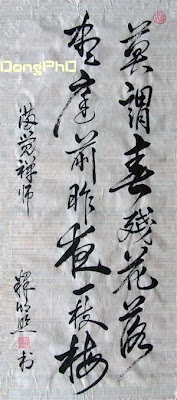 DongPhD
莫謂春殘花落
盡庭前昨夜一枝梅
滿覺禪師
釋
書